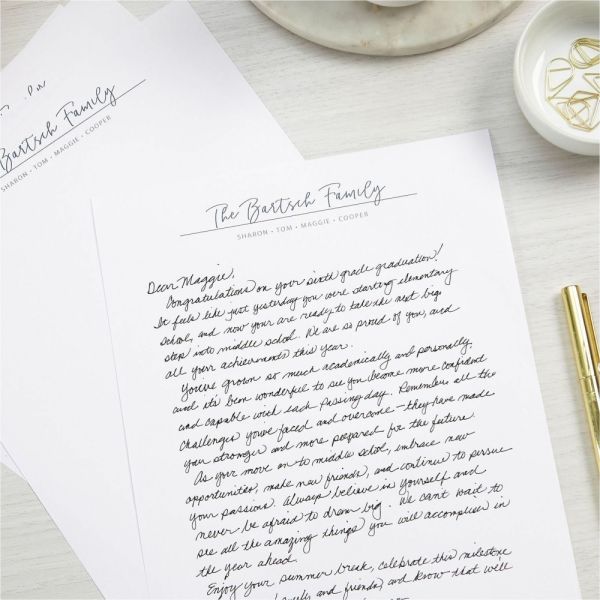 Bartsch Family
SHARON • TOM • MAGGIE • COOPER
The Bartsch Family
SHARON • TOM • MAGGIE • COOPER
Dear Maggie,
Congratulations on your sixth grade graduation!
It feels like just yesterday you were starting elementary
school, and now your are ready to take the next big
step into middle school. We are so proud of you, and
all your achievements this year.
You've grown so much academically and personally,
and it's been wonderful to see you become more confident
and capable with each passing day. Remember, all the
challenges you've faced and overcome – they have made
your stronger and more prepared for the future.
As your move on to middle school, embrace new
opportunities, make new friends, and continue to pursue
your passions. Always believe in yourself and
never be afraid to dream big. We can't wait to
see all the amazing things you will accomplish in
the year ahead.
Enjoy your summer break, celebrate this milestone
and friends, and know that we'll